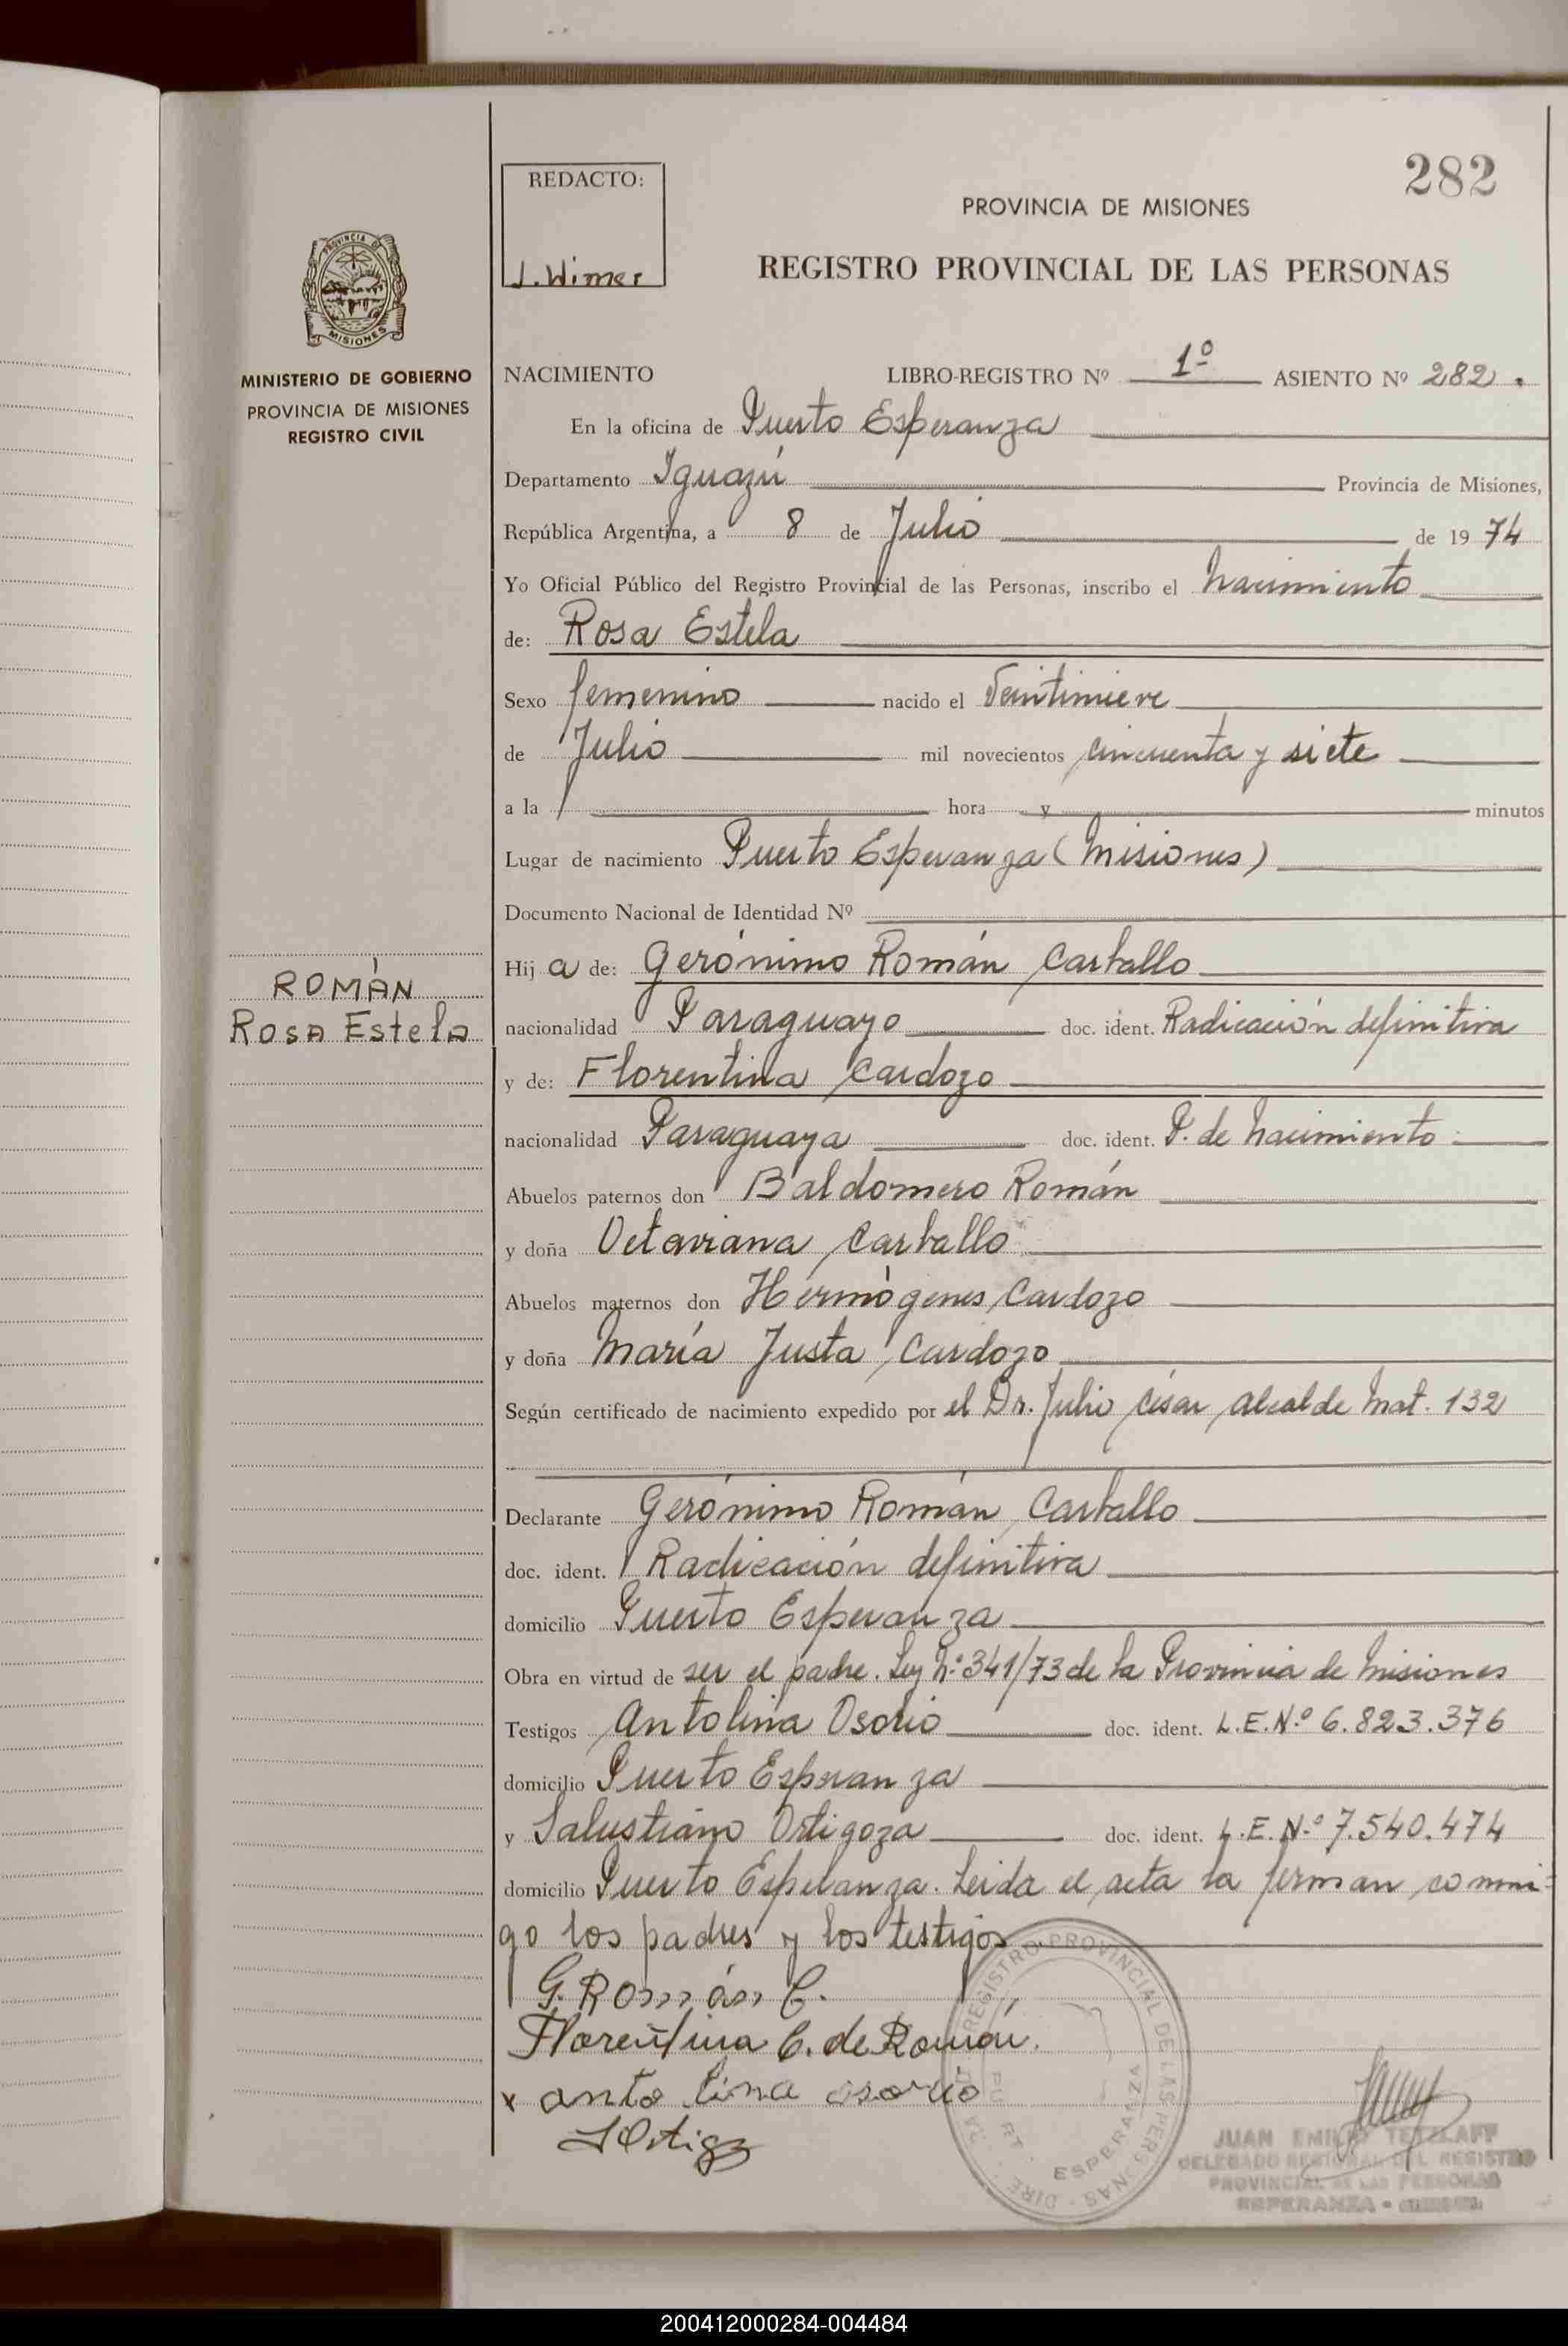 282
REDACTO:
J. Wimer
PROVINCIA DE MISIONES
REGISTRO PROVINCIAL DE LAS PERSONAS
PROVINCIA DE
MISIONES
MINISTERIO DE GOBIERNO
PROVINCIA DE MISIONES
REGISTRO CIVIL
NACIMIENTO LIBRO-REGISTRO Nº 1º ASIENTO Nº 282.
En la oficina de Puerto Esperanza
Departamento Iguazú Provincia de Misiones,
República Argentina, a 8 de Julio de 1974
Yo Oficial Público del Registro Provincial de las Personas, inscribo el nacimiento
de: Rosa Estela
Sexo femenino nacido el Veintinueve
de Julio mil novecientos cincuenta y siete
a la hora y minutos
Lugar de nacimiento Puerto Esperanza (Misiones)
Documento Nacional de Identidad Nº
Hija de: Gerónimo Román Carballo
ROMÁN
Rosa Estela
nacionalidad Paraguayo doc. ident. Radicación definitiva
y de: Florentina Cardozo
nacionalidad Paraguaya doc. ident. P. de nacimiento
Abuelos paternos don Baldomero Román
y doña Octaviana Carballo
Abuelos maternos don Hermógenes Cardozo
y doña María Justa Cardozo
Según certificado de nacimiento expedido por el Dr. Julio César Alcalde Mat. 132
Declarante Gerónimo Román Carballo
doc. ident. Radicación definitiva
domicilio Puerto Esperanza
Obra en virtud de ser el padre. Ley Nº 341/73 de la Provincia de Misiones
Testigos Antolina Osorio doc. ident. L.E.N.º 6.823.376
domicilio Puerto Esperanza
y Salustiano Ortigoza doc. ident. L.E.N.º 7.540.474
domicilio Puerto Esperanza. Leida el acta la firman conmi=
go los padres y los testigos
G. Román C.
Florentina C. de Román.
x antolina osorio
S Ortigz
REGISTRO PROVINCIAL DE LAS PERSONAS
ESPERANZA
JUAN EMILIO TETZLAFF
DELEGADO REGIONAL DEL REGISTRO
PROVINCIAL DE LAS PERSONAS
ESPERANZA
200412000284-004484